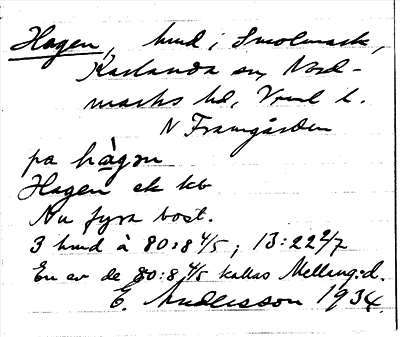 Hagen, hmd i Smolmark,
Karlanda sn, Nord-
marks hd, Vrml l.
N Framgården
på hàgɒn
Hagen ek kb
Nu fyra bost.
3 hmd à 80:8 4/5; 13:22 2/7
En av de 80:8 4/5 kallas Mellang:d.
E. Andersson 1934.